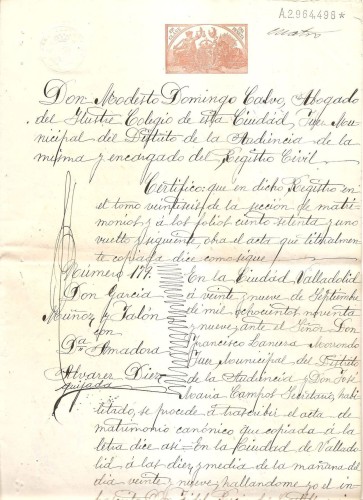 A2964496*
Don Modesto Domingo Calvo, Abogado
del Ilustre Colegio de esta Ciudad, Juez Mu-
nicipal del Distrito de la Audiencia de la
misma y encargado del Registro Civil
Certifico: que en dicho Registro en
el tomo veintiseis de la sección de matri-
monios y á los folios ciento setenta y uno
vuelto y siguiente, obra el acta que literalmen-
te copiada dice como sigue
Número 179. En la Ciudad Valladolid
Don Garcia á veinte y nueve de Septiembre
Muñoz y Jalón de mil ochocientos noventa
con y nueve ante el Señor Don
Dª Amadora Francisco Zarzuera
Alvarez Diez Juez Municipal del Distrito
Quijada de la Audiencia y Don José
Maria Campos Secretario, habi-
litado, se procede á trascribir el acta de
matrimonio canónico que copiada á la
letra dice así = En la Ciudad de Vallado-
lid á las diez y media de la mañana de
dia veinte y nueve, hallandome yo el in-